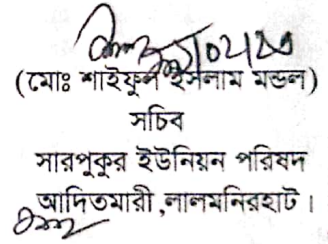 (মোঃ শাইফুল ইসলাম মন্ডল)
সচিব
সারপুকুর ইউনিয়ন পরিষদ
আদিতমারী ,লালমনিরহাট ।